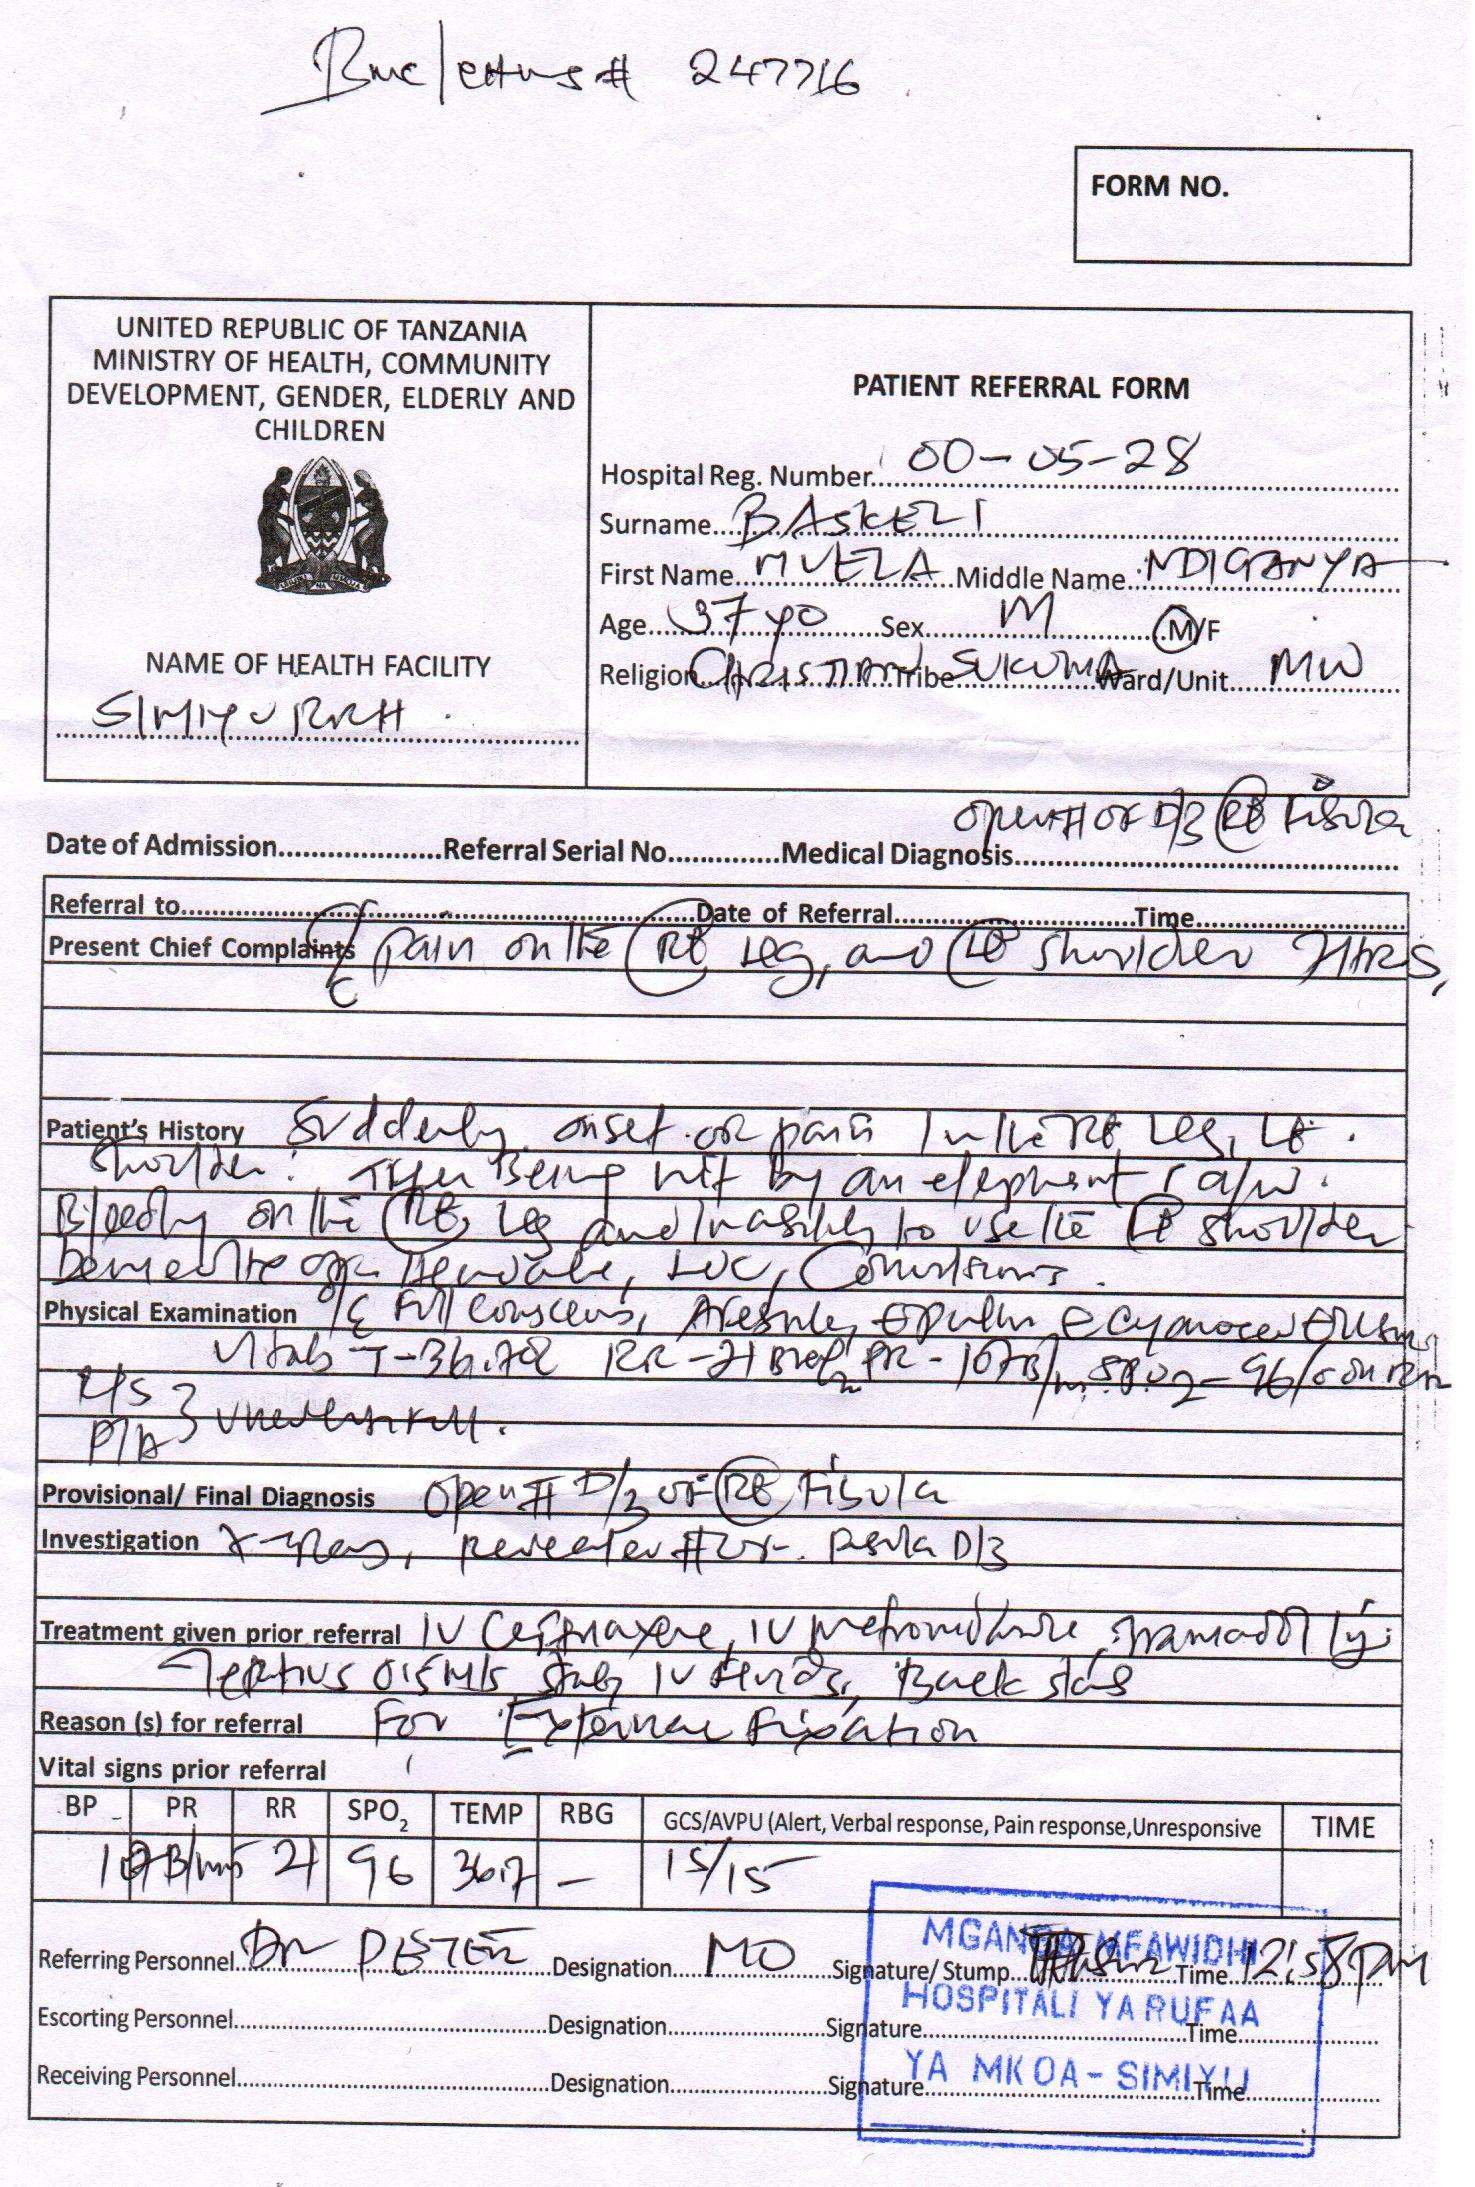 # 247716
FORM NO.
UNITED REPUBLIC OF TANZANIA
MINISTRY OF HEALTH, COMMUNITY
DEVELOPMENT, GENDER, ELDERLY AND
CHILDREN
NAME OF HEALTH FACILITY
SIMIYU RRH
PATIENT REFERRAL FORM
Hospital Reg. Number 00-05-28
Surname BASKELI
First Name Middle Name
Age 37 yo Sex M M/F
Religion CHRISTIAN Tribe SUKUMA Ward/Unit MW
Date of Admission Referral Serial No Medical Diagnosis open # of D/3 Rt Fibula
Referral to Date of Referral Time
Present Chief Complaints pain on the Rt Leg, and Lt shoulder 7HRS,
Patient's History Suddenly onset of pain in the Rt Leg, Lt
shoulder. After Being hit by an elephant, a/w
Bleeding on the Rt Leg and inability to use the Lt shoulder
Denies Hx of Headache, LOC, Convulsions.
Physical Examination O/E Full conscious, Afebrile,
Vitals T-36.7 RR-21 PR-107B/m SPO2-96/.
P/A
Provisional/ Final Diagnosis open # D/3 of Rt Fibula
Investigation X-Ray, # of D/3
Treatment given prior referral IV IV metronidazole, tramadol
IV fluids, Back slab
Reason (s) for referral For External Fixation
Vital signs prior referral
BP PR RR SPO2 TEMP RBG GCS/AVPU (Alert, Verbal response, Pain response,Unresponsive TIME
107B/min 21 96 36.7 - 15/15
Referring Personnel Dr PETER Designation MO Signature/ Stump Time 12:58PM
Escorting Personnel Designation Signature Time
Receiving Personnel Designation Signature Time
MGANGA MFAWIDHI
HOSPITALI YA RUFAA
YA MKOA - SIMIYU